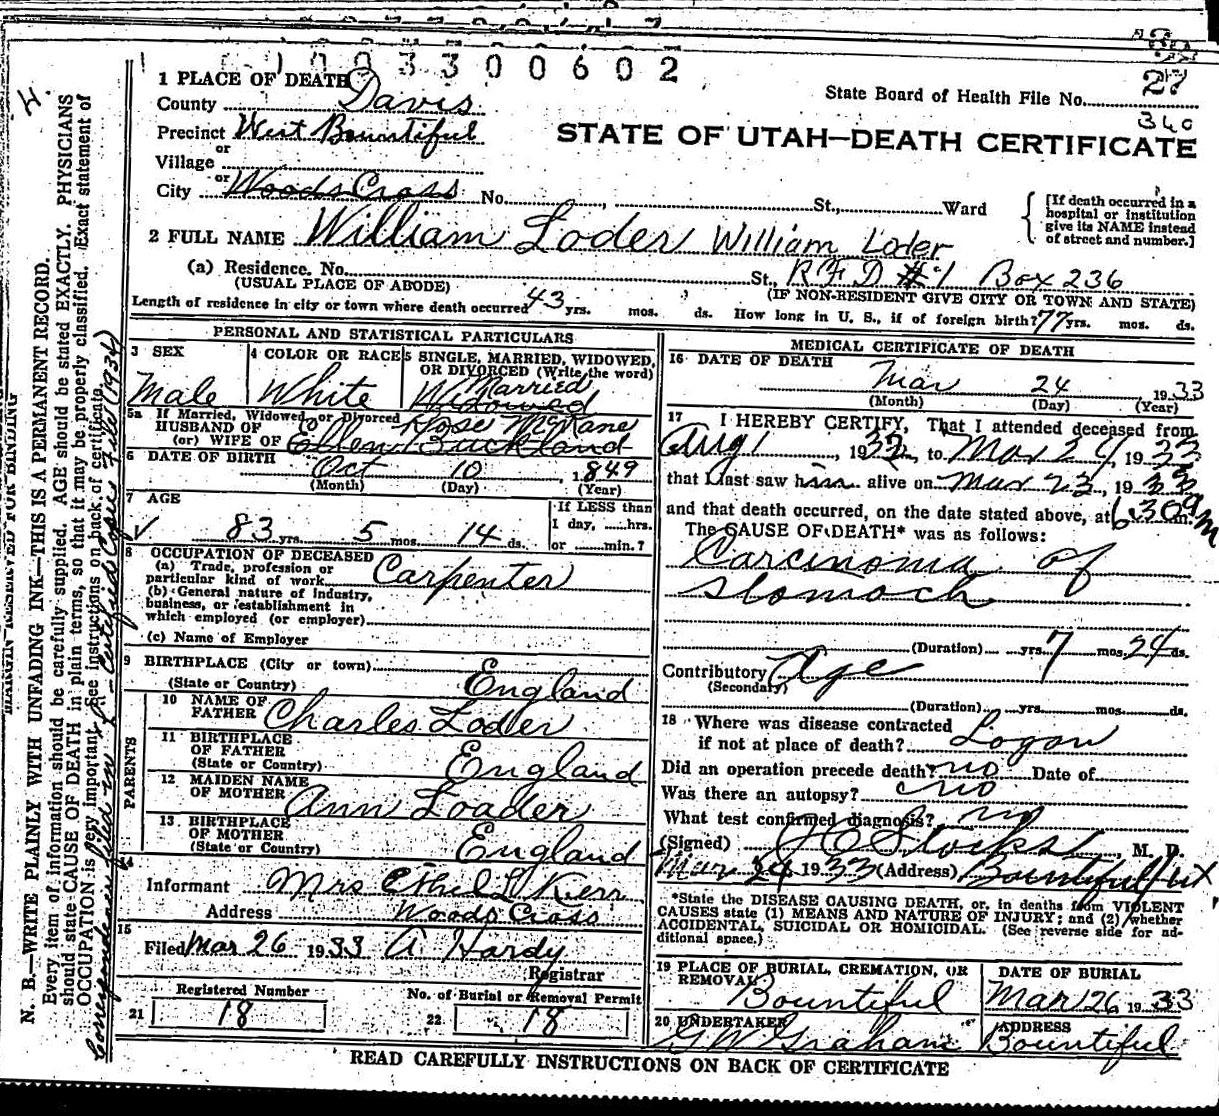 1 0 0 3 3 0 0 6 0 2
1 PLACE OF DEATH
County Davis
State Board of Health File No. 27
340
Precinct West Bountiful
STATE OF UTAH—DEATH CERTIFICATE
or
Village
or
City Woods Cross No. , St., Ward
[If death occurred in a
hospital or institution
give its NAME instead
of street and number.]
2 FULL NAME William Loder William Loder
(a) Residence. No. St., R.F.D #1 Box 236
(USUAL PLACE OF ABODE) (IF NON-RESIDENT GIVE CITY OR TOWN AND STATE)
Length of residence in city or town where death occurred 43 yrs. mos. ds. How long in U. S., if of foreign birth? 77 yrs. mos. ds.
PERSONAL AND STATISTICAL PARTICULARS
3 SEX
Male
4 COLOR OR RACE
White
5 SINGLE, MARRIED, WIDOWED,
OR DIVORCED (Write the word)
Married
Widowed
5a If Married, Widowed or Divorced
HUSBAND OF Rose McKane
(or) WIFE OF Ellen Buckland
6 DATE OF BIRTH
Oct 10, 1849
(Month) (Day) (Year)
7 AGE
83 yrs. 5 mos. 14 ds.
If LESS than
1 day, hrs.
or min.?
8 OCCUPATION OF DECEASED
(a) Trade, profession or
particular kind of work Carpenter
(b) General nature of industry,
business, or establishment in
which employed (or employer)
(c) Name of Employer
9 BIRTHPLACE (City or town)
(State or Country) England
PARENTS
10 NAME OF
FATHER Charles Loder
11 BIRTHPLACE
OF FATHER
(State or Country) England
12 MAIDEN NAME
OF MOTHER Ann Loader
13 BIRTHPLACE
OF MOTHER
(State or Country) England
14
Informant Mrs Ethel L Kerr
Address Woods Cross
15
Filed Mar 26 1933 A Hardy
Registrar
Registered Number
21 18
No. of Burial or Removal Permit
22 18
MEDICAL CERTIFICATE OF DEATH
16 DATE OF DEATH
Mar 24 1933
(Month) (Day) (Year)
17 I HEREBY CERTIFY, That I attended deceased from
Aug 1, 1932, to Mar 24, 1933
that I last saw him alive on Mar 23, 1933
and that death occurred, on the date stated above, at 6:30 a m.
The CAUSE OF DEATH* was as follows:
Carcinoma of
Stomach
(Duration) yrs. 7 mos. 24 ds.
Contributory Age
(Secondary)
(Duration) yrs. mos. ds.
18 Where was disease contracted
if not at place of death? Logan
Did an operation precede death? no Date of
Was there an autopsy? no
What test confirmed diagnosis? no
(Signed) J C Stocks, M. D.
Mar 24 1933 (Address) Bountiful Ut
*State the DISEASE CAUSING DEATH, or, in deaths from VIOLENT
CAUSES state (1) MEANS AND NATURE OF INJURY; and (2) whether
ACCIDENTAL, SUICIDAL OR HOMICIDAL. (See reverse side for ad-
ditional space.)
19 PLACE OF BURIAL, CREMATION, OR
REMOVAL
Bountiful
DATE OF BURIAL
Mar 26 1933
20 UNDERTAKER
G W Graham
ADDRESS
Bountiful
READ CAREFULLY INSTRUCTIONS ON BACK OF CERTIFICATE
MARGIN RESERVED FOR BINDING
N. B.—WRITE PLAINLY WITH UNFADING INK—THIS IS A PERMANENT RECORD.
Every item of information should be carefully supplied. AGE should be stated EXACTLY. PHYSICIANS
should state CAUSE OF DEATH in plain terms, so that it may be properly classified. Exact statement of
OCCUPATION is very important. (See instructions on back of certificate.